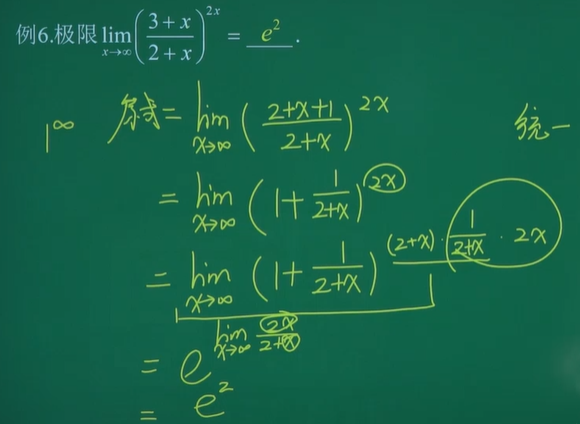 例6.极限 lim x→∞ ((3+x)/(2+x))^{2x} = e^2 .
1^∞ 原式 = lim x→∞ ((2+x+1)/(2+x))^{2x} 统一
= lim x→∞ (1 + 1/(2+x))^{2x}
= lim x→∞ (1 + 1/(2+x))^{(2+x)·1/(2+x)·2x}
= e^{lim x→∞ 2x/(2+x)}
= e^2